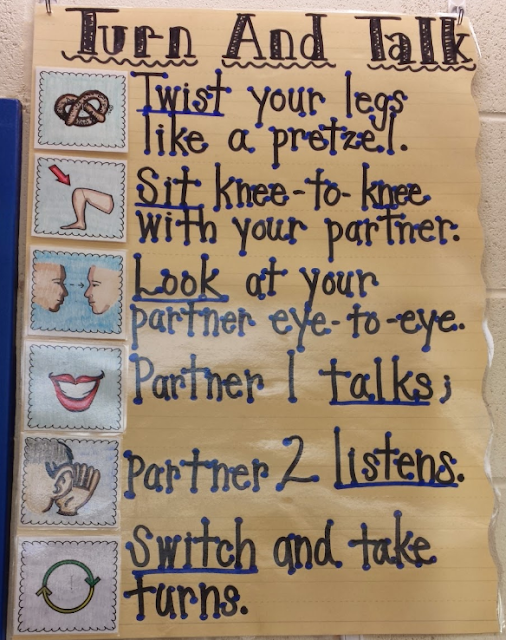 Turn And Talk
Twist your legs
like a pretzel.
Sit knee-to-knee
with your partner.
Look at your
partner eye-to-eye.
Partner 1 talks;
Partner 2 listens.
Switch and take
turns.